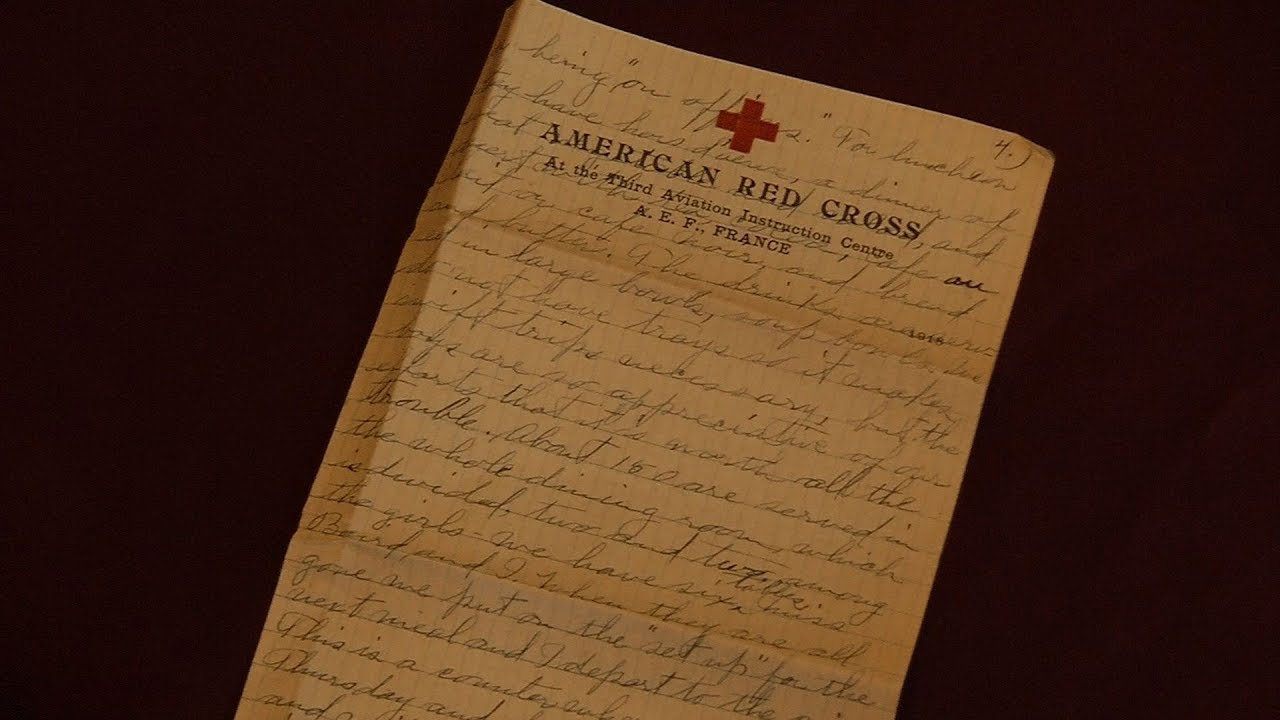 4.)
being "on
"For luncheon
AMERICAN RED CROSS
At the Third Aviation Instruction Centre
A. E. F., FRANCE
they have hors d'œuvre, a dinner of
and
cafe au
or cafe noir and bread
and butter." The drinks are serv-
1918
ed in large bowls, soup bowls. We
do not have trays so it makes
swift trips necessary, but the
boys are so appreciative of our
efforts that it's worth all the
trouble. About 150 are served in
the whole dining room, which
is divided two and two among
the girls - we have six tables Miss
Baird and I. When they are all
gone we put on the "set up" for the
next meal and I depart to the
This is a counter
Thursday and
and